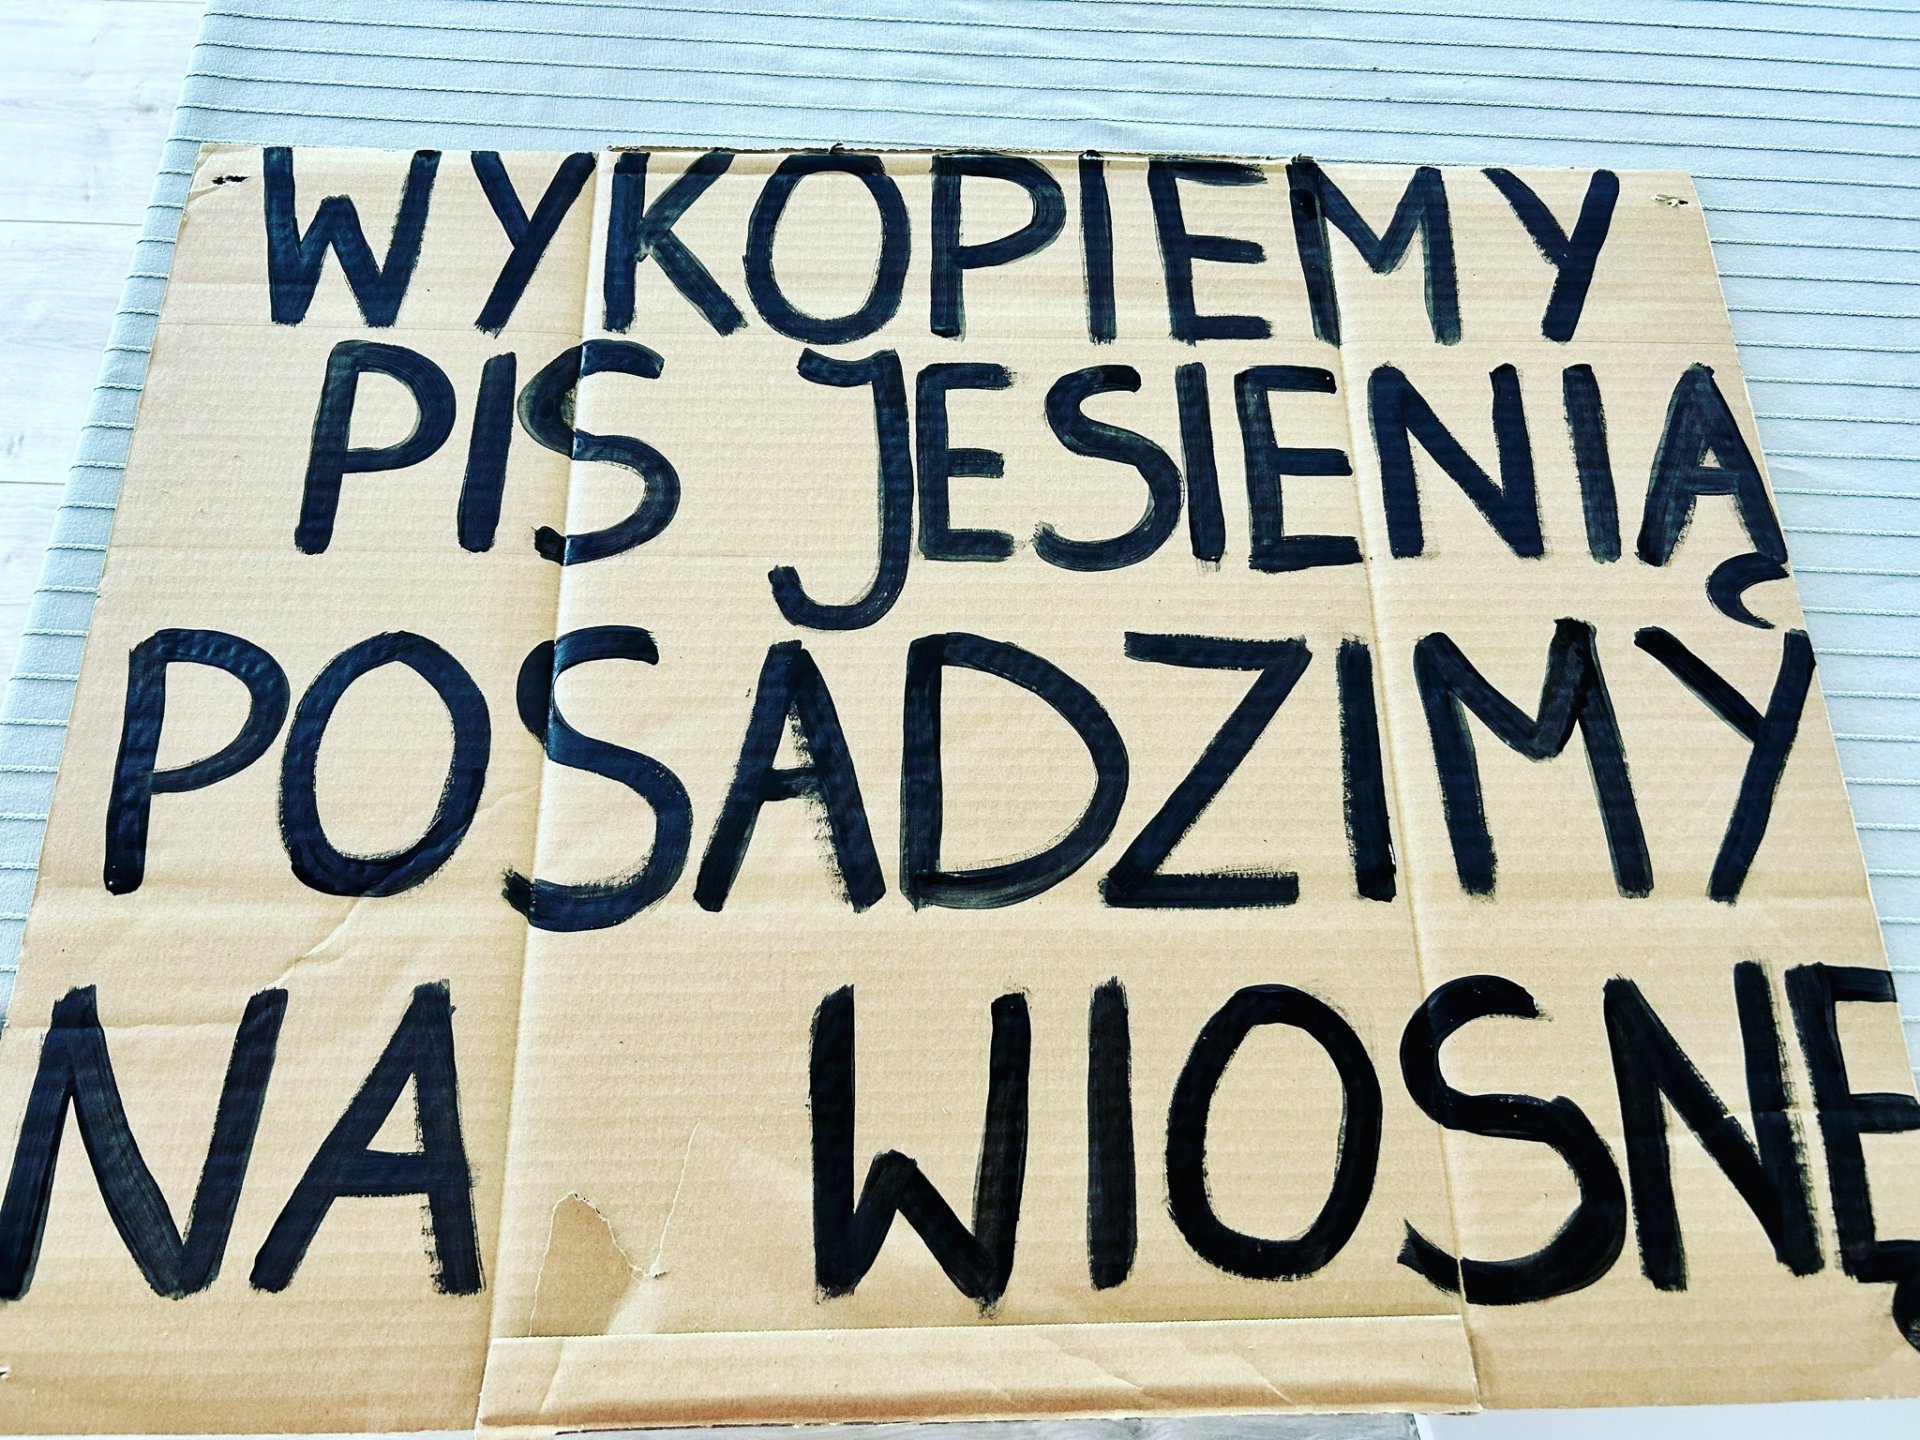 WYKOPIEMY
PIS JESIENIĄ
POSADZIMY
NA WIOSNĘ